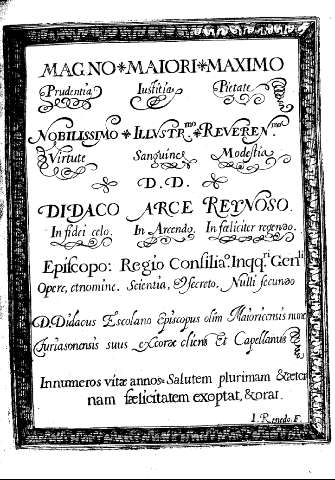 MAGNO * MAIORI * MAXIMO
Prudentia Iustitia Pietate
NOBILISSIMO * ILLVSTR.mo * REVEREN.mo
Virtute Sanguine Modestia
D. D.
DIDACO ARCE REYNOSO.
In fidei celo. In Arcendo, In fæliciter regendo.
Episcopo: Regio Consilia.o Inqq.ri Gen.li
Opere, et nomine. Scientia, & secreto, Nulli secundo
D. Didacus Escolano Episcopus olim Maioricensis nunc
Turiasonensis suus ex corde cliens Et Capellanus
Innumeros vitæ annos Salutem plurimam & æter
nam fælicitatem exoptat, & orat.
I. Renedo. F.